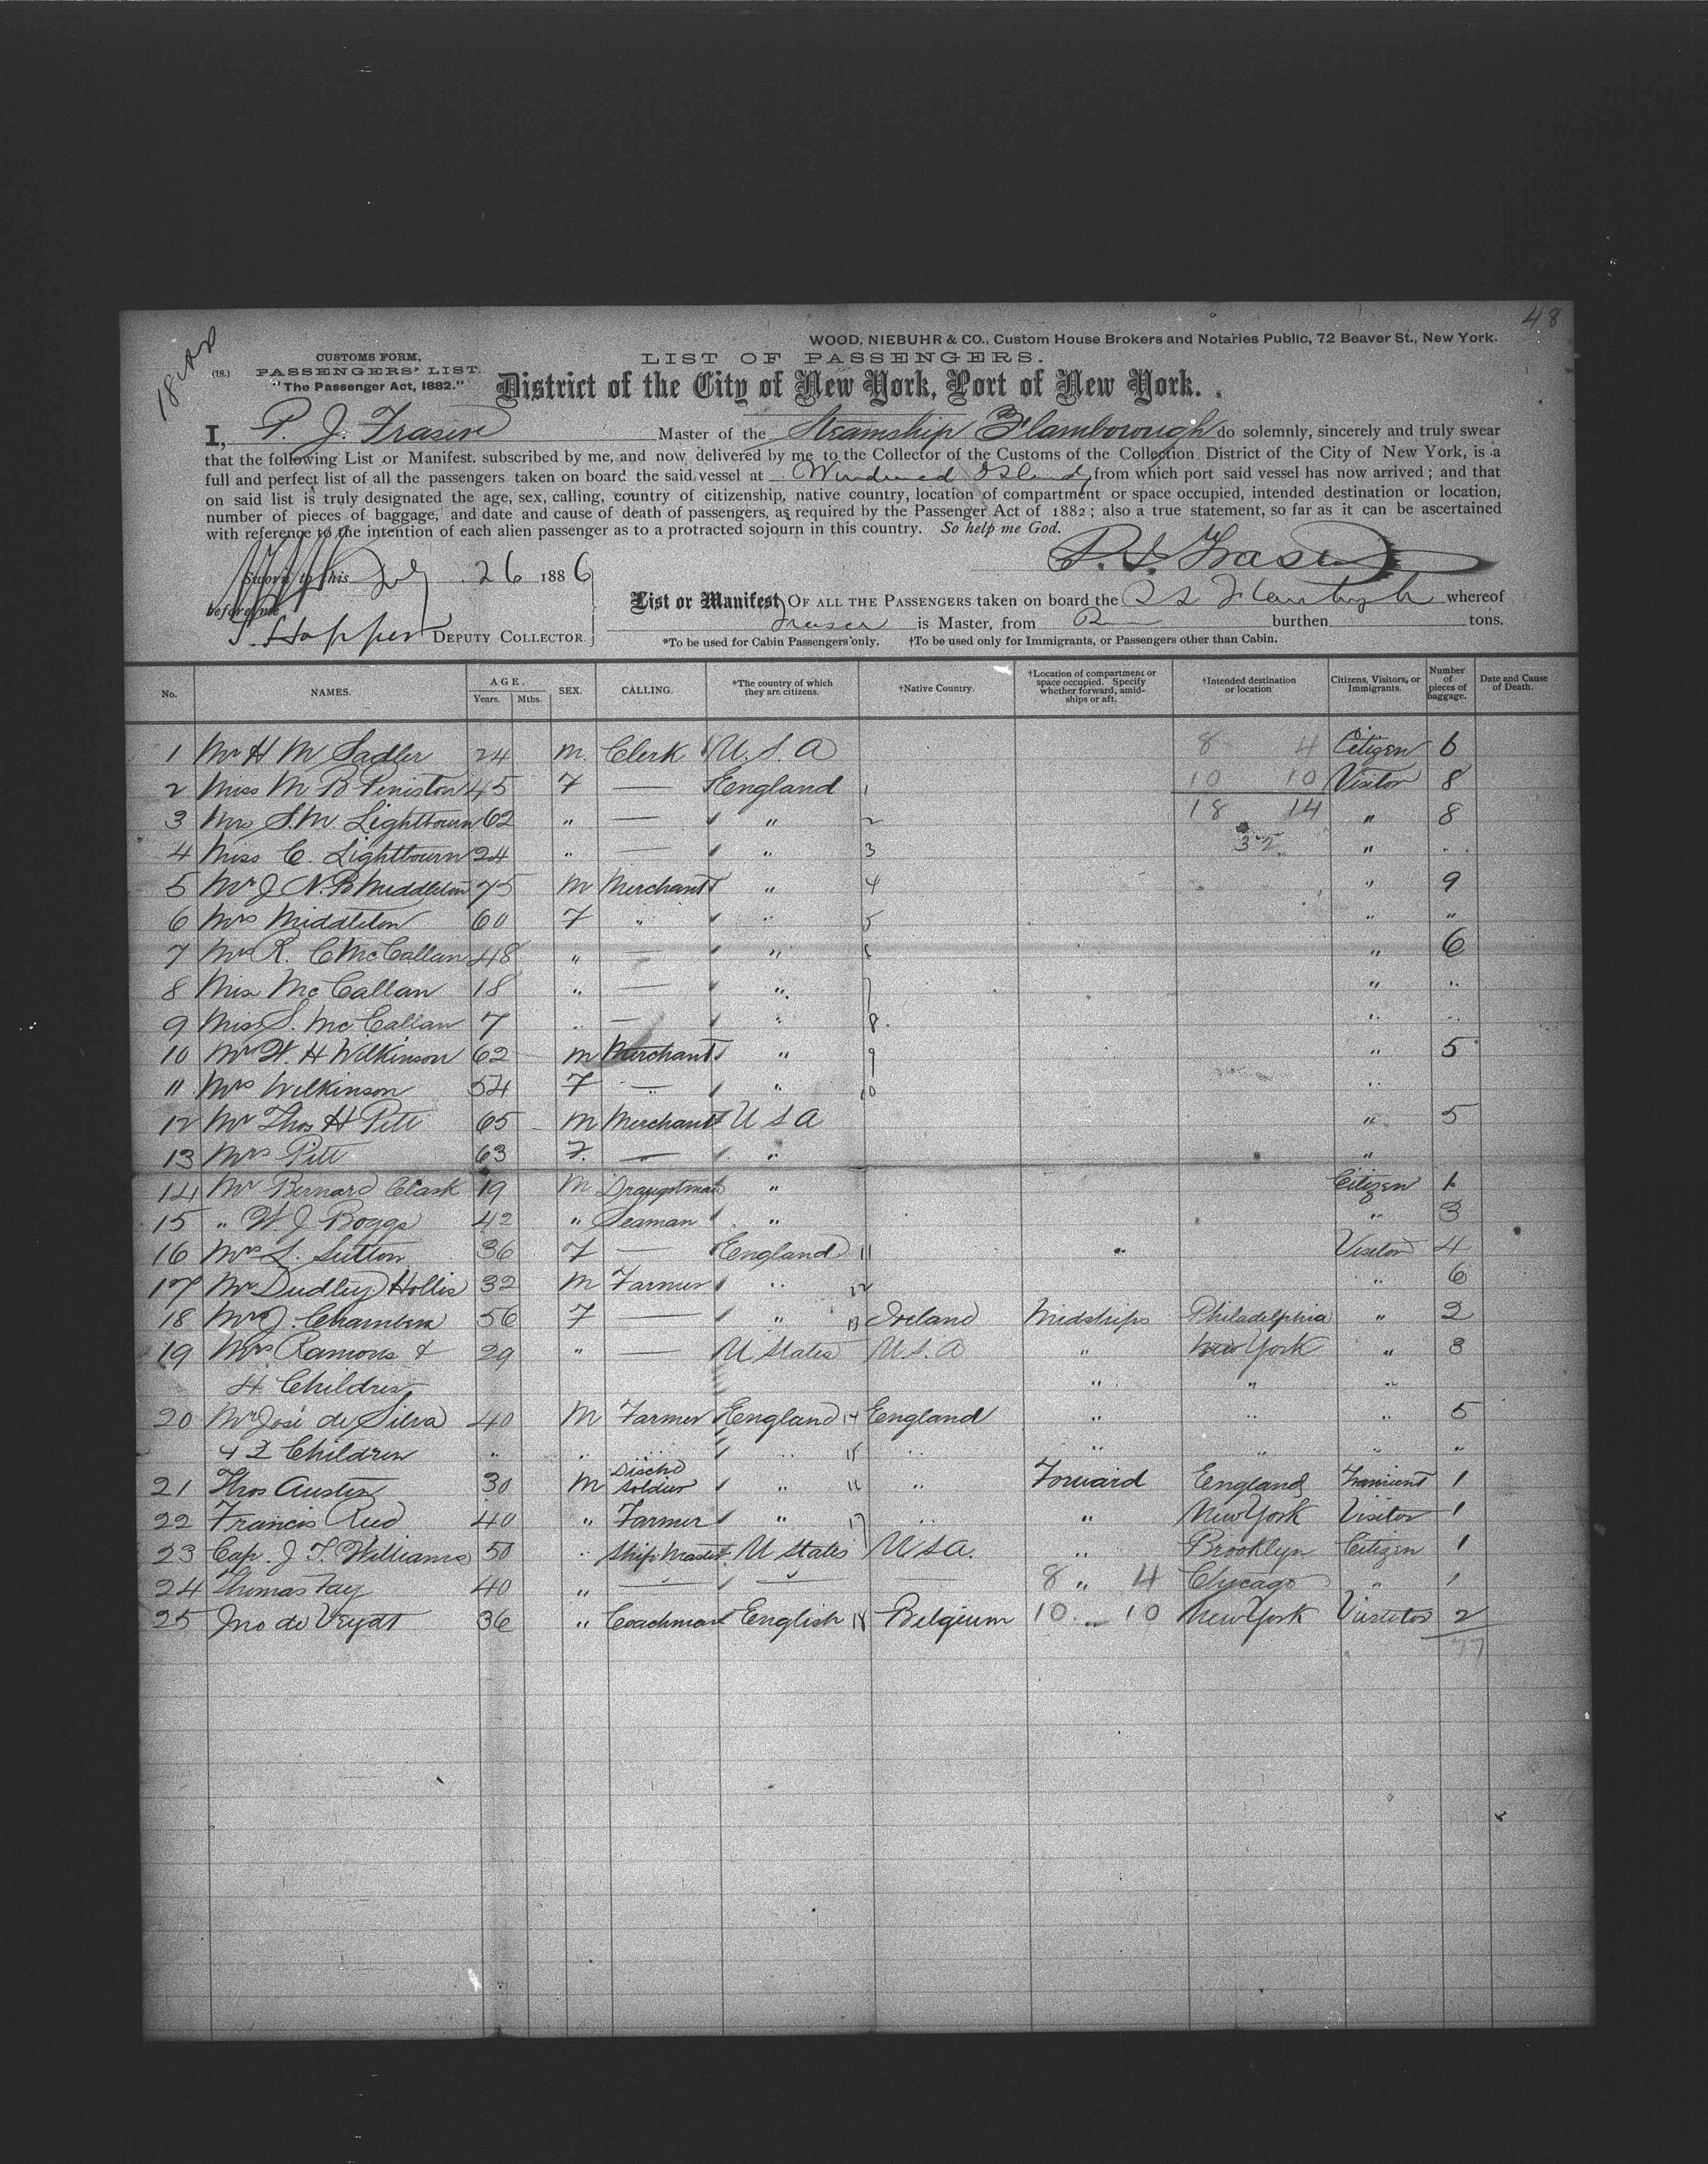 48
WOOD, NIEBUHR & CO., Custom House Brokers and Notaries Public, 72 Beaver St., New York.
(18.)
CUSTOMS FORM,
PASSENGERS' LIST.
"The Passenger Act, 1882."
LIST OF PASSENGERS.
District of the City of New York, Port of New York.
I, P. J. Fraser Master of the Steamship Flamborough do solemnly, sincerely and truly swear
that the following List or Manifest, subscribed by me, and now delivered by me to the Collector of the Customs of the Collection District of the City of New York, is a
full and perfect list of all the passengers taken on board the said vessel at Windward Islands from which port said vessel has now arrived; and that
on said list is truly designated the age, sex, calling, country of citizenship, native country, location of compartment or space occupied, intended destination or location,
number of pieces of baggage, and date and cause of death of passengers, as required by the Passenger Act of 1882; also a true statement, so far as it can be ascertained
with reference to the intention of each alien passenger as to a protracted sojourn in this country. So help me God.
P. J. Fraser
Sworn to this July 26 1886
before me
Hopper DEPUTY COLLECTOR
List or Manifest OF ALL THE PASSENGERS taken on board the SS Flamborough whereof
Fraser is Master, from burthen tons.
*To be used for Cabin Passengers only. †To be used only for Immigrants, or Passengers other than Cabin.
No. NAMES. AGE. Years. Mths. SEX. CALLING. *The country of which they are citizens. †Native Country. †Location of compartment or space occupied. Specify whether forward, amidships or aft. †Intended destination or location Citizens, Visitors, or Immigrants. Number of pieces of baggage. Date and Cause of Death.
1 Mr H M Sadler 24 M. Clerk U. S. A 8 4 Citizen 6
2 Miss M B Peniston 45 F — England 1 10 10 Visitor 8
3 Mrs S. M. Lightbourn 62 " — " 2 18 14 " 8
4 Miss C. Lightbourn 24 " — " 3 32 " "
5 Mr J N. B Middleton 75 M Merchant " 4 " 9
6 Mrs Middleton 60 F " " 5 " "
7 Mrs R. C McCallan 48 " — " 6 " 6
8 Miss McCallan 18 " — " 7 " "
9 Miss S. McCallan 7 " — " 8 " "
10 Mr W. H Wilkinson 62 M Merchant " 9 " 5
11 Mrs Wilkinson 54 F — " 10 "
12 Mr Thos H Pitt 65 M Merchant U S A " 5
13 Mrs Pitt 63 F. — " "
14 Mr Bernard Clask 19 M Draugstman " Citizen 1
15 " W. J Boggs 42 " Seaman " " 3
16 Mrs L. Sutton 36 F — England 11 " Visitor 4
17 Mr Dudley Hollis 32 M Farmer " 12 " 6
18 Mrs J. Chambers 56 F — " 13 Ireland Midships Philadelphia " 2
19 Mrs Ramons & 29 " — U States U. S. A " New York " 3
4 Children " " "
20 Mr José de Silva 40 M Farmer England 14 England " " " 5
& 2 Children " " " " 15 " " " " "
21 Thos Austin 30 M Dischd Soldier " 16 " Forward England Transient 1
22 Francis Reid 40 " Farmer " 17 " " New York Visitor 1
23 Cap. J. T. Williams 50 " Ship Master U States U S A. " Brooklyn Citizen 1
24 Thomas Fay 40 " — — — 8 " 4 Chycago " 1
25 Jno de Vrydt 36 " Coachman English 18 Belgium 10 " 10 New York Visitor 2
77